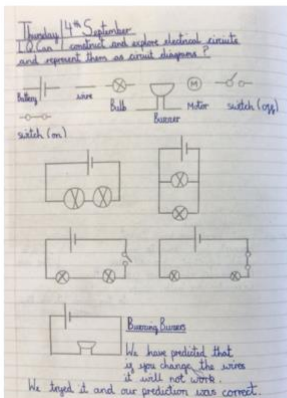 Thursday 14th September
I.Q Can I construct and explore electrical circuits
and represent them as circuit diagrams?
Battery wire Bulb Buzzer M Motor switch (off)
switch (on)
Buzzing Buzzers
We have predicted that
if you change the wires
it will not work.
We tryed it and our prediction was correct.